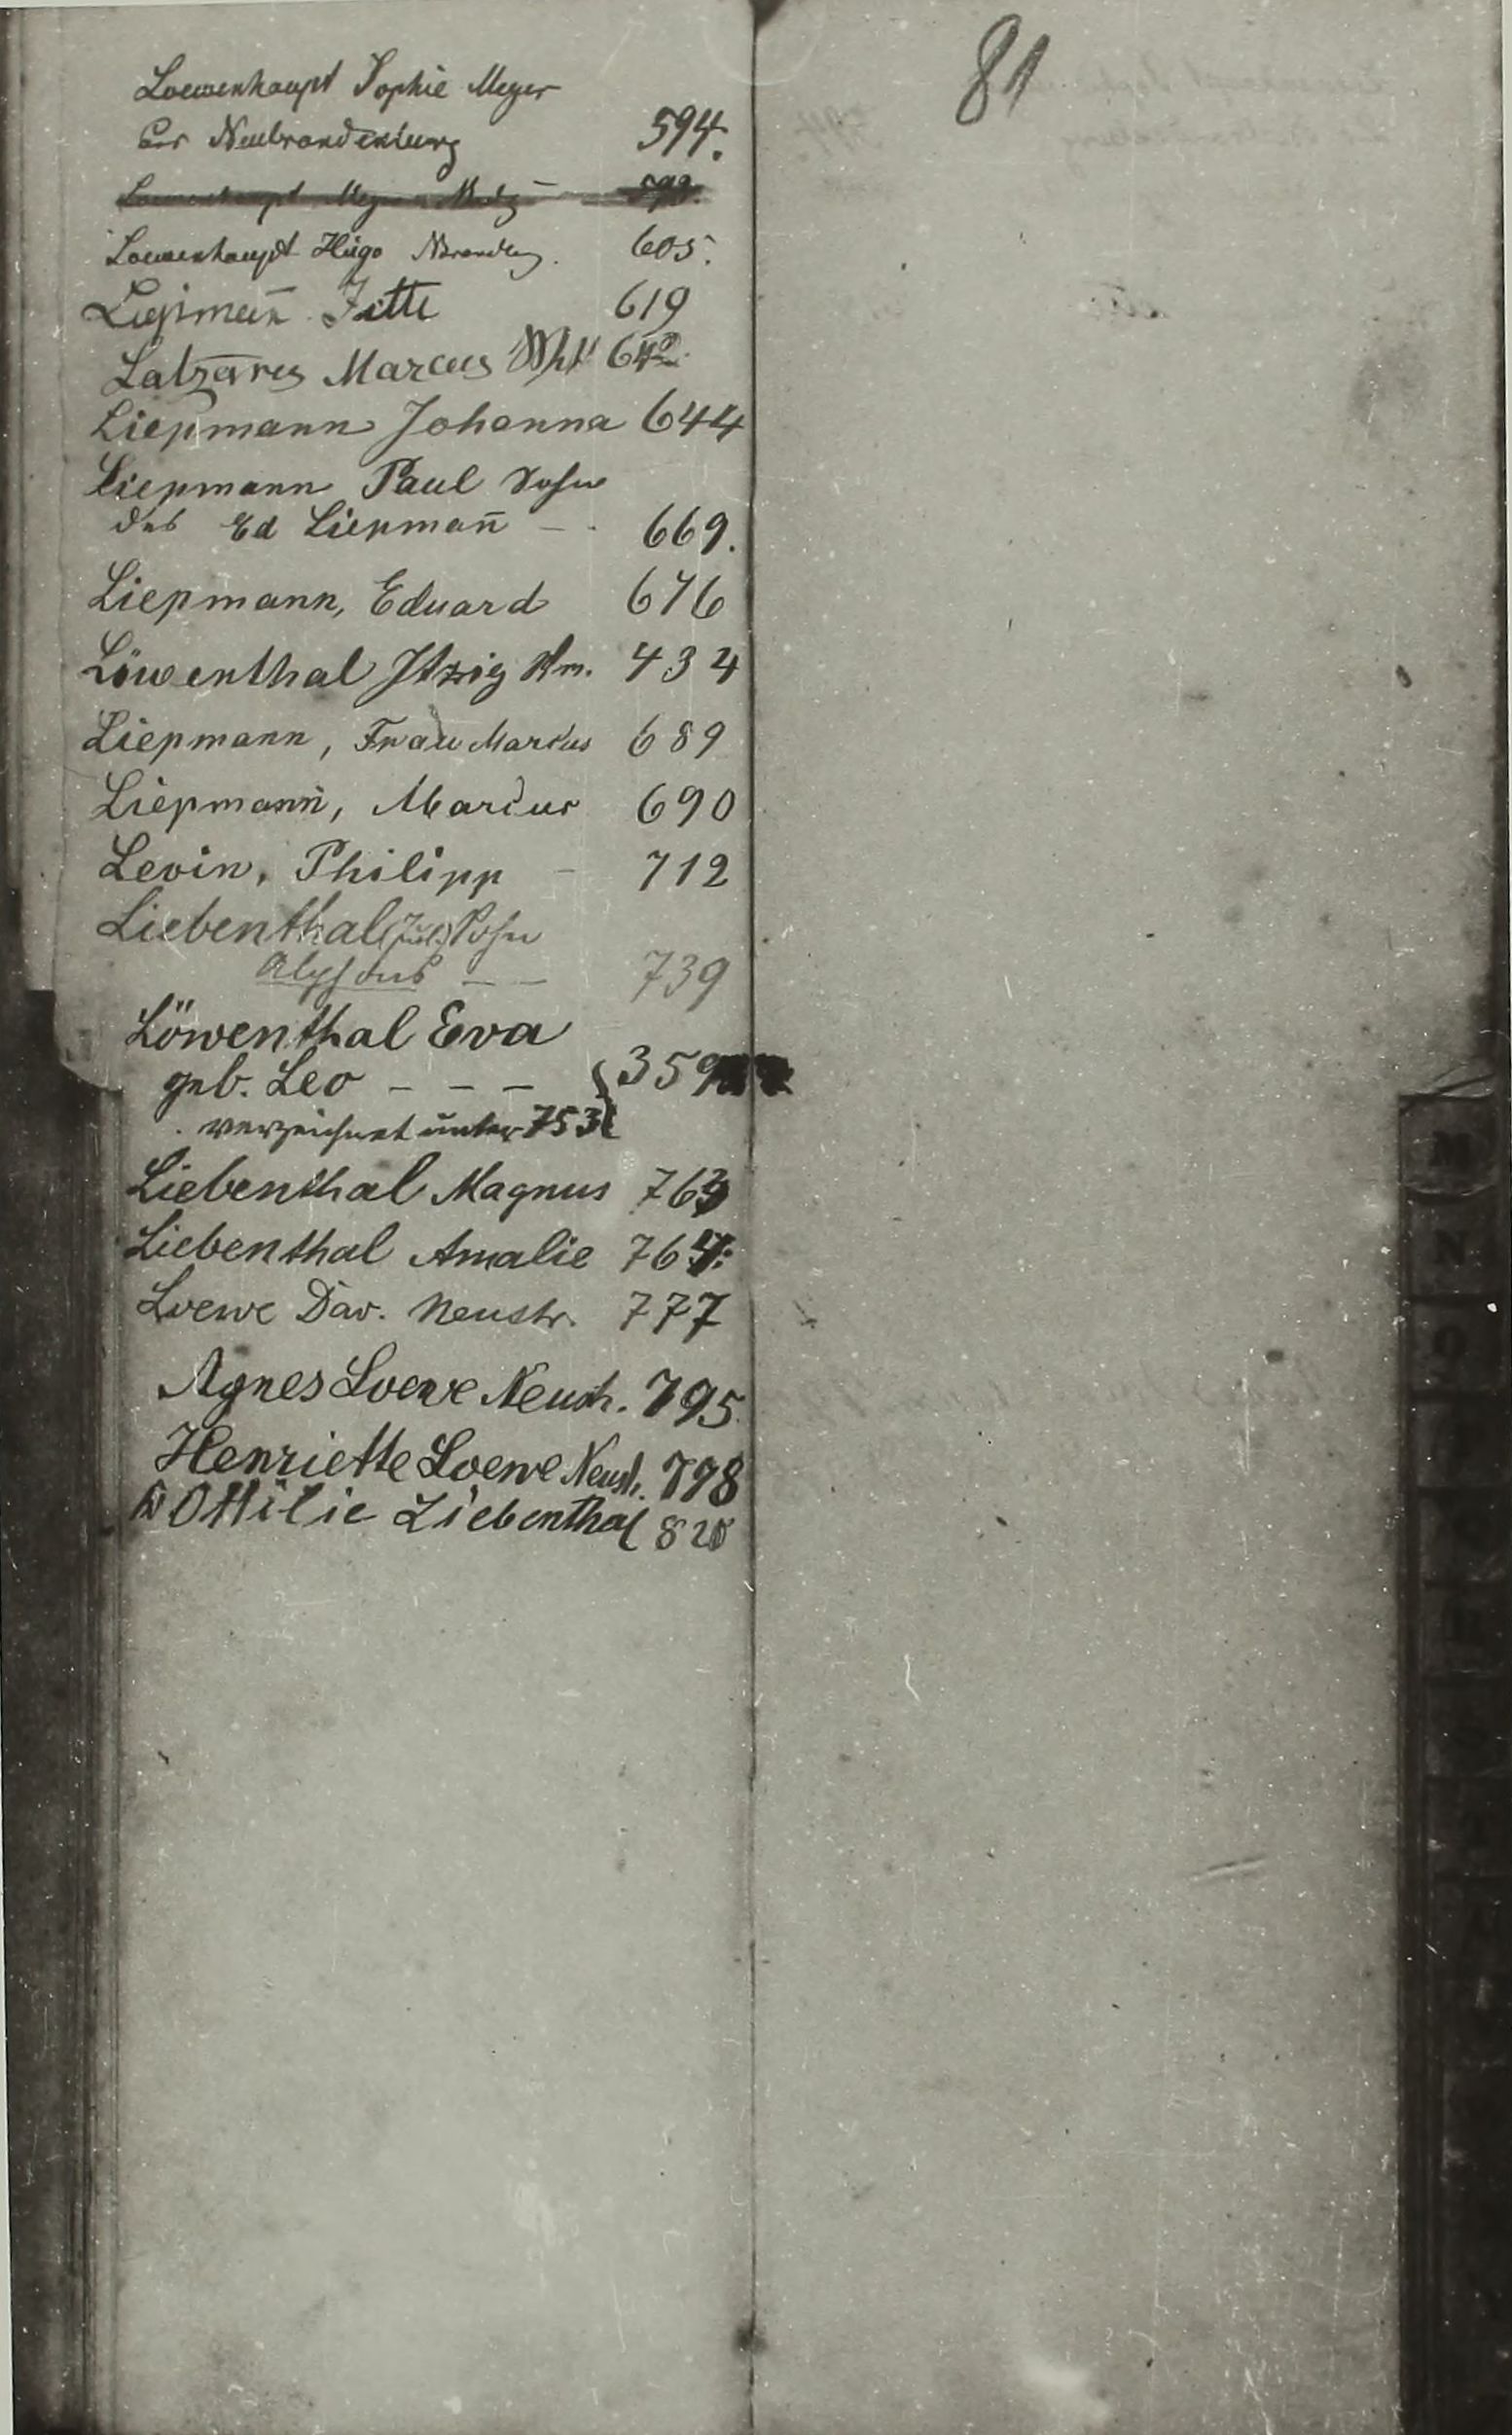 Loewenhaupt Sophie Meyer
aus Neubrandenburg 594.
Loewenhaupt Meyer
Loewenhaupt Hugo Nbrandbg. 605.
Liepman̄ Jette 619
Latzarus Marcus 642
Liepmann Johanna 644
Liepmann Paul Sohn
des Ed Liepman̄ — 669.
Liepmann, Eduard 676
Löwenthal Itzig Km. 434
Liepmann, Frau Markus 689
Liepmann, Marcus 690
Levin, Philipp - 712
Liebenthal (Jul.) Sohn
Alphons — — 739
Löwenthal Eva
geb. Leo - - - } 359
verzeichnet unter 753
Liebenthal Magnus 763
Liebenthal Amalie 764.
Loewe Dav. Neustr. 777
Agnes Loewe Neustr. 795
Henriette Loewe Neustr. 798
Ottilie Liebenthal
81
M
N
O